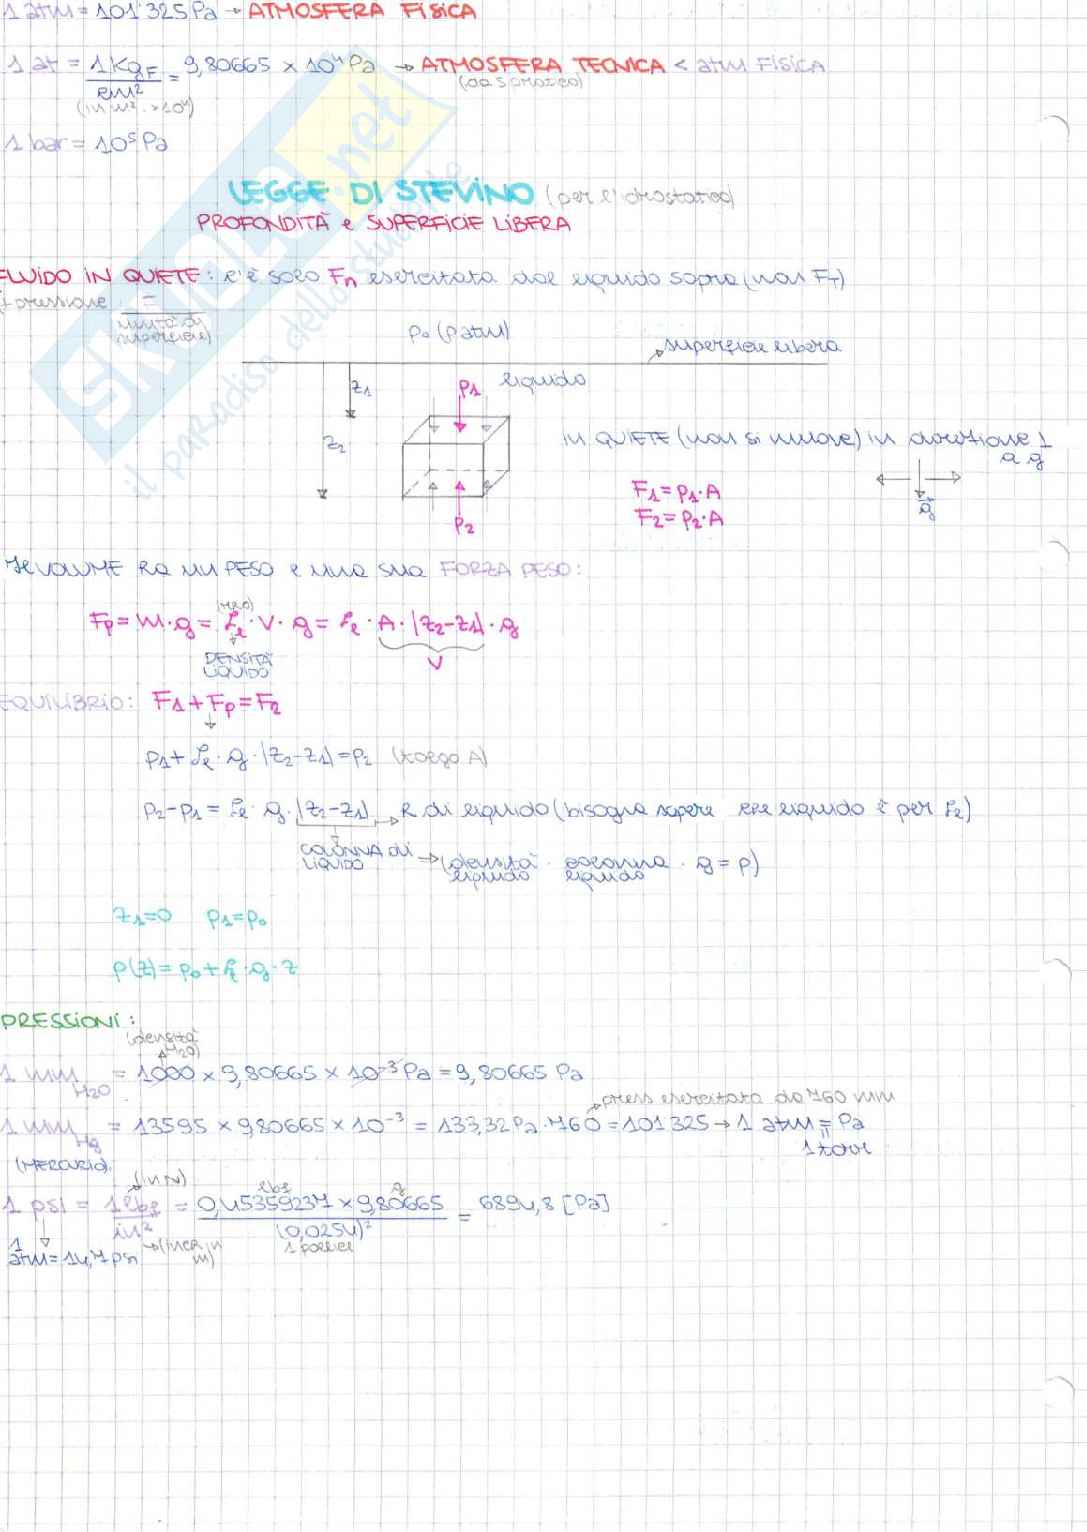 1 atm = 101'325 Pa → ATMOSFERA FISICA
1 at = 1 KgF / cm² = 9,80665 × 10⁴ Pa → ATMOSFERA TECNICA < atm FISICA
(in m² → 10⁴)
1 bar = 10⁵ Pa
LEGGE DI STEVINO (per l'idrostatica)
PROFONDITÀ e SUPERFICIE LIBERA
FLUIDO IN QUIETE: c'è solo Fn esercitata dal liquido sopra (non FT)
pressione =
unità di
superficie)
p₀ (patm)
superficie libera
z₁
p₁
liquido
z₂
in QUIETE (non si muove) in direzione ⊥
a g
F₁ = p₁·A
F₂ = p₂·A
g
p₂
Il VOLUME ha un PESO e una sua FORZA PESO:
(H2O)
Fp = m·g = ρₗ·V·g = ρₗ·A·|z₂-z₁|·g
DENSITÀ
LIQUIDO
V
EQUILIBRIO: F₁ + Fp = F₂
p₁ + ρₗ·g·|z₂-z₁| = p₂ (tolgo A)
p₂-p₁ = ρₗ·g·|z₂-z₁| → h di liquido (bisogna sapere che liquido è per ρₗ)
COLONNA di
LIQUIDO → (densità liquido · colonna liquido · g = p)
z₁=0 p₁=p₀
p(z) = p₀ + ρₗ·g·z
PRESSIONI:
(densità
H2O)
1 mm H2O = 1000 × 9,80665 × 10⁻³ Pa = 9,80665 Pa
press esercitata da 760 mm
1 mm Hg = 13595 × 9,80665 × 10⁻³ = 133,32 Pa · 760 = 101325 → 1 atm = Pa
(MERCURIO)
1 torr
(in N)
1 psi = 1 lbf / in² = 0,45359237 × 9,80665 / (0,0254)² = 6894,8 [Pa]
lbf
g
1 pollice
1
atm = 14,7 psi
→ (inch in
m)
SKUOLA.net
il paradiso dello studente